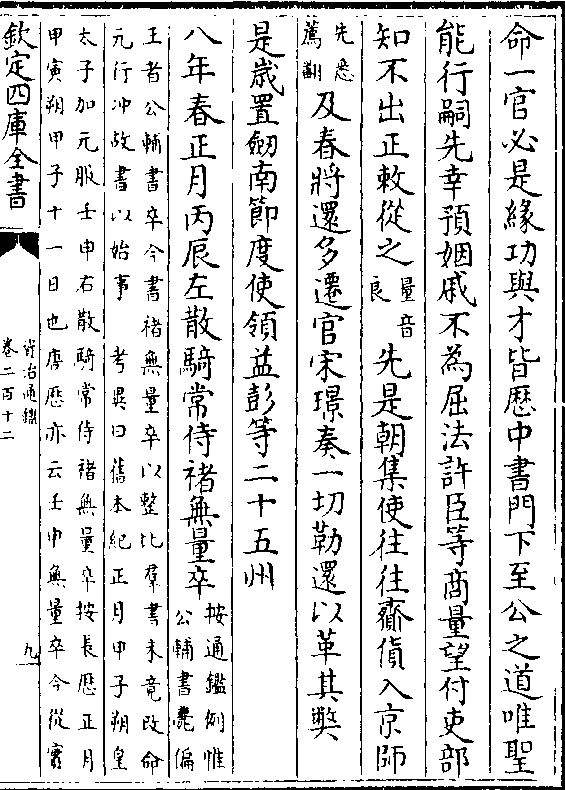 命一官必是緣功與才皆歷中書門下至公之道唯聖
能行嗣先幸預姻戚不為屈法許臣等商量望付吏部
知不出正敕從之量音良先是朝集使往往齎貨入京師
先悉薦翻及春將還多遷官宋璟奏一切勒還以革其弊
是歲置劒南節度使領益彭等二十五州
八年春正月丙辰左散騎常侍褚無量卒按通鑑例惟公輔書薨偏
王者公輔書卒今書褚無量卒以整比羣書未竟改命
元行冲故書以始事 考異曰舊本紀正月甲子朔皇
太子加元服壬申右散騎常侍褚無量卒按長歷正月
甲寅朔甲子十一日也唐歷亦云壬申無量卒今從實
欽定四庫全書
資治通鑑
卷二百十二
九